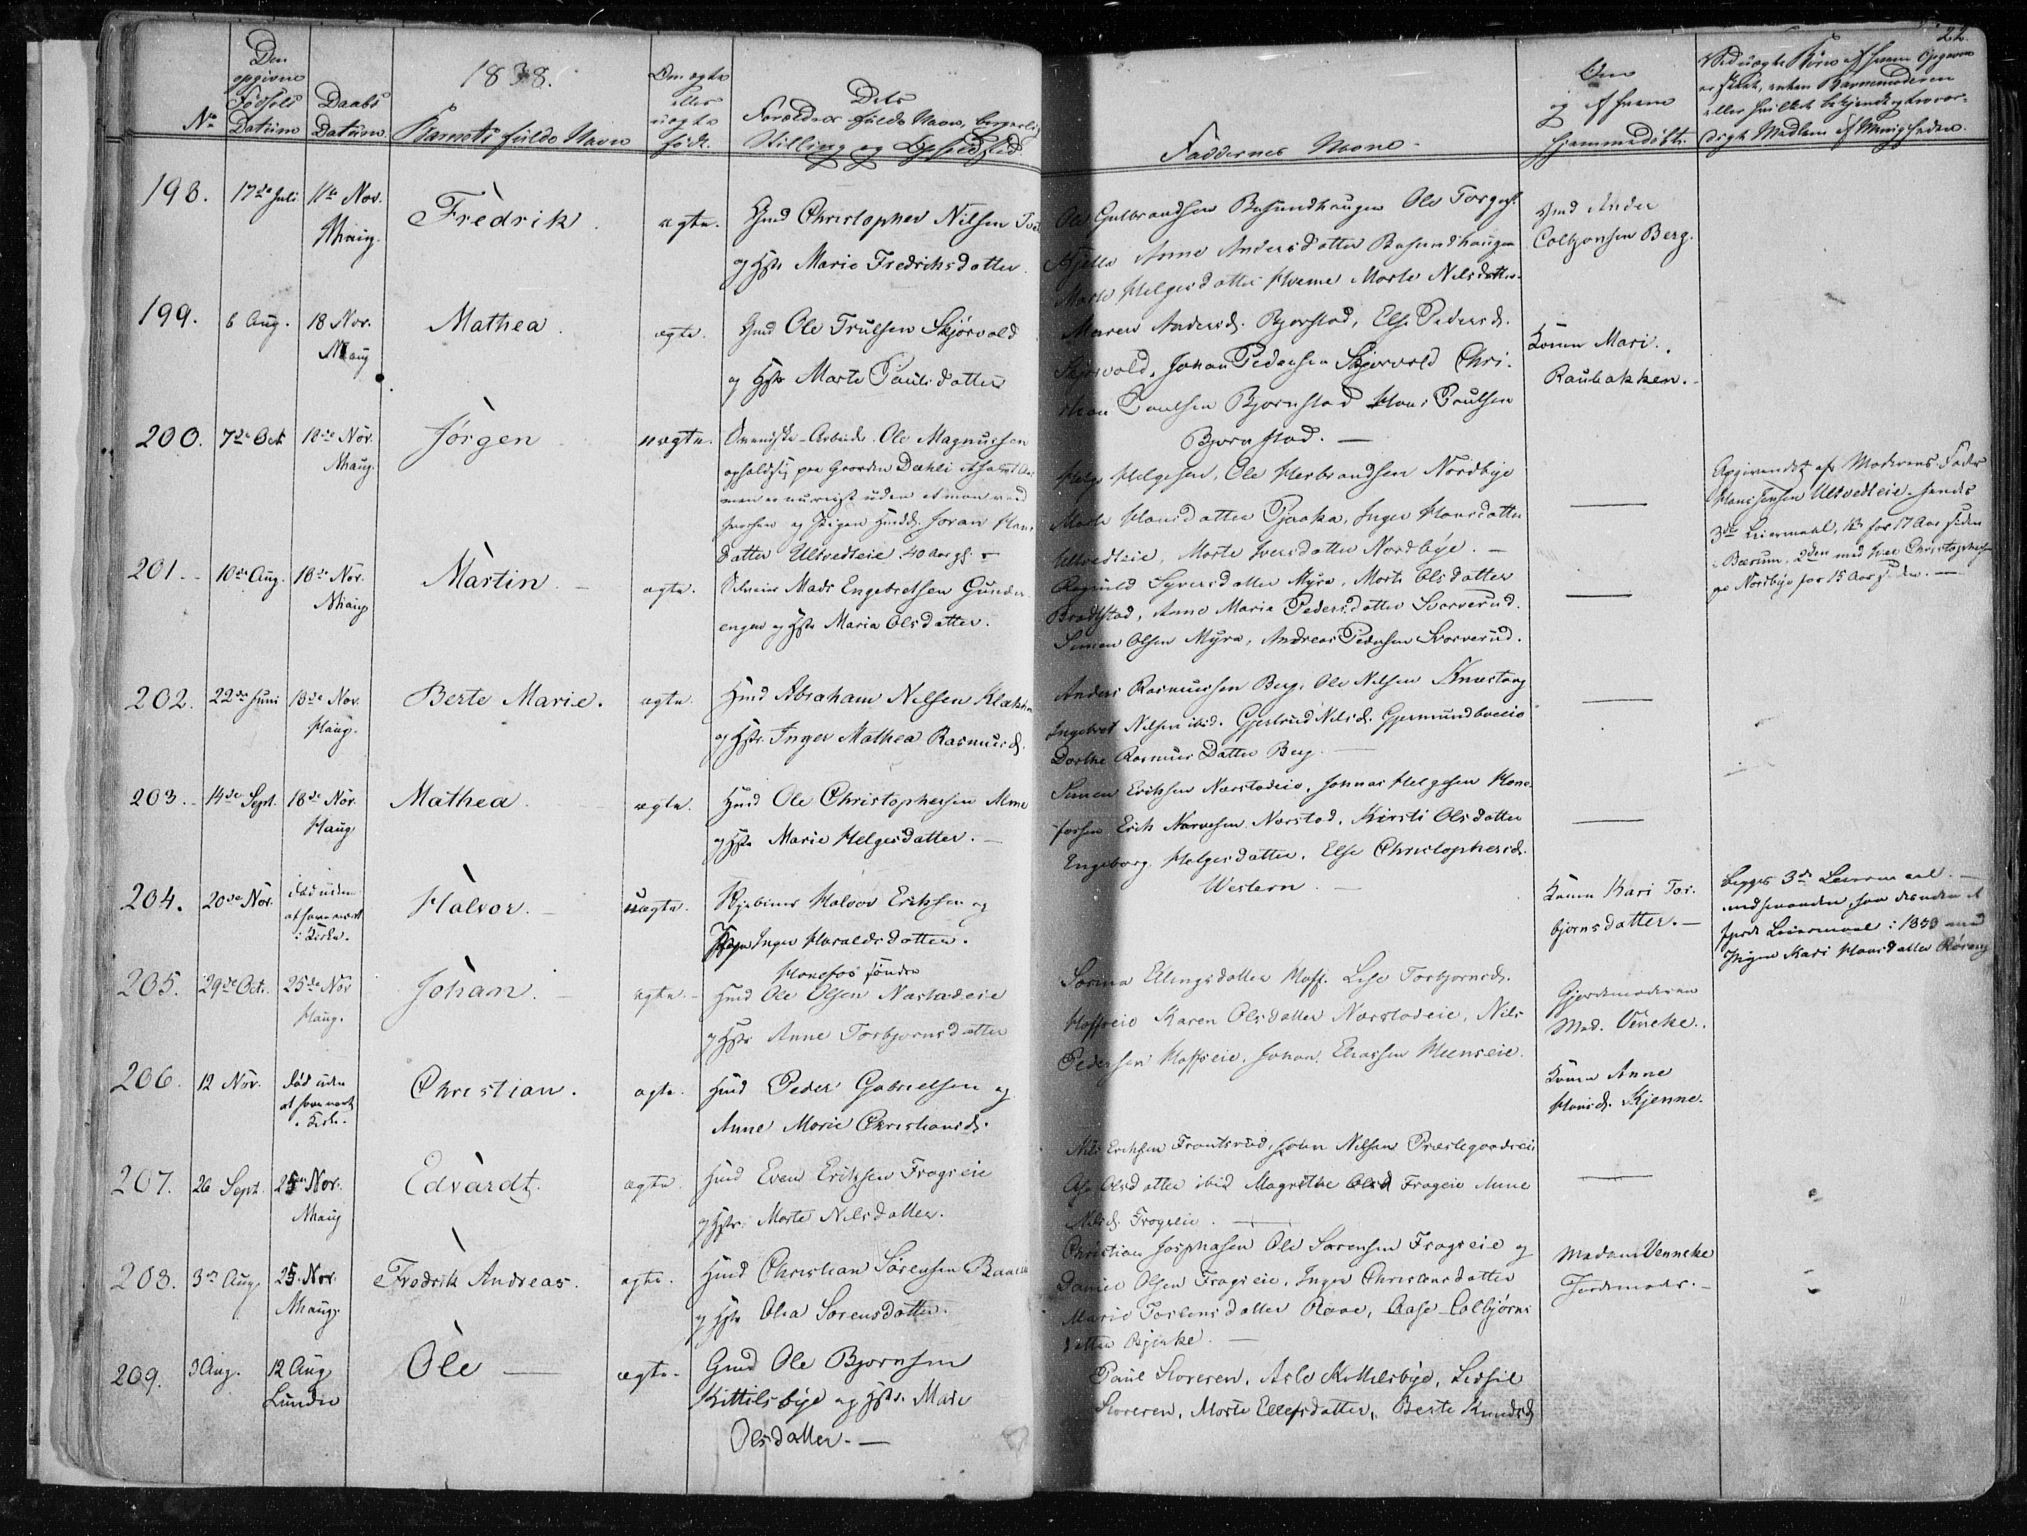 22.
1838.
No
Den opgivne Fødsels Datum
Daabs Datum
Barnets fulde Navn
Om ægte eller uægte født.
Dets Forældres fulde Navn, borgerlig Stilling og Opholdsted
Faddernes Navne.
Om og af hvem hjemmedøbt.
198. 17de Juli 11te Nov. Nhaug. Fredrik ægte.
Hmd Christopher Nilsen
og Hstr Marie Fredriksdatter.
Ole Gulbrandsen Basundhaugen Ole Torges.
Fjeld Anne Andersdatter Basundhaugen
Marte Helgesdatter Hveme Marte Nilsdatter.
Hmd Ander
Colbjønsen Berg.
199. 6 Aug. 18 Nov. Nhaug Mathea. ægte.
Hmd Ole Trulsen Skjørvold
og Hstr Marte Paulsdatter
Maren Andersd. Bjørstad, Else Pedersd.
Skjørvold, Johan Pedersen Skjørvold Chri-
stian Paulsen Bjørnstad Hans Paulsen
Bjørnstad. —
Konen Mari
Raubakken.
200. 7de Oct 18de Nov. Nhaug. Jørgen uægte.
Arbeider Ole Magnussen
opholdsig paa Gaarden Dæhli
men er nu reist uden at man veed
hvorhen og Pigen Hmdd. Joran Hans
datter Ultvedteie 40 Aar gl.
Helge Helgesen, Ole Herbrandsen Nordbye
Marte Hansdatter Pjaaka, Inger Hansdatter
Ultvedteie, Marte Iversdatter Nordbye. —
Opgivendet af Moderens Fader
Hans Jensen Ultvedteie. hendes
3die Leiermaal, 1ste for 17 Aar siden
i Bærum, 2den med Iver Christophersen
paa Nordbye for 15 Aar siden. —
201. 10de Aug. 18de Nov. Nhaug Martin. — ægte.
Mads Engebretsen Gunder
engen og Hstr Maria Olsdatter.
Ragnild Syversdatter Myra, Marte Olsdatter
Bradtstad, Anne Maria Pedersdatter Svarverud.
Simen Olsen Myra, Andreas Pedersen Svarverud.
202. 22de Juni 18de Nov. Haug. Berte Marie. ægte
Hmd Abraham Nilsen Klækken
og Hstr. Inger Mathea Rasmusd.
Anders Rasmussen Berg, Ole Nilsen Knæstang
Ingebret Nilsen ibid. Gjertrud Nilsd. Gjermundboeie
Dorthe Rasmus Datter Berg. —
203. 14de Sept. 18de Nov. Haug Mathea. ægte.
Hmd Ole Christophersen Alme
og Hstr Marie Helgesdatter. —
Simen Eriksen Nærstadeie, Johnas Helgesen Hone-
fossen Erik Narvesen Narstad, Kirsti Olsdatter
Engeborg Helgesdatter, Else Christophersd.
Western. —
204. 20de Nov. død uden at have været i Kirke. Halvor. — uægte.
Halvor Eriksen og
Pigen Inger Haraldsdatter.
Konen Kari Tor-
bjørnsdatter. —
begges 3de Leiermaal. —
fjerde Leiermaal i 1833 med
Pigen Kari Hansdatter
205. 29de Oct. 25de Nov Haug. Johan. — ægte. —
Honefos søndre
Hmd Ole Olsen Nærstadeie
og Hstr Anne Torbjørnsdatter
Sørina Erlingsdatter Hoff. Lise Torbjørnsd.
Hoffseie Karen Olsdatter Nærstadeie, Nils
Pedersen Hoffseie, Johan Eliassen Meenseie.
Gjordemoderen
Mad. Veneke.
206. 12 Nov. død uden at have været i Kirke. Christian. ægte.
Hmd Peder Gabrielsen og
Anne Marie Christiansd.
Konen Anne
Hansd. Kjenne.
207. 26 Sept. 25 Nov. Nhaug Edvardt. ægte.
Hmd Even Eriksen Frogseie
og Hstr. Marte Nilsdatter.
Nils Eriksen Frantsrud, John Nilsen Præstegaardseie
Olsdatter ibid Magrethe Olsd Frogeie Anne
Nilsd. Frogseie. —
208. 3die Aug. 25 Nov. Nhaug. Fredrik Andreas. ægte.
Hmd Christian Sørensen
og Hstr Olea Sørensdatter.
Christian Josephsen Ole Sørensen Frogseie og
Daniel Olsen Frogseie, Inger Christensdatter
Marie Torstensdatter Raae, Aase Colbjørns
datter —
Madam Venneke
Jordmoder. —
209. 3 Aug. 12 Aug Lunder Ole — ægte.
Gmd Ole Bjørnsen
Kittilsbye og Hstr. Mari
Olsdatter. —
Paul Storeren, Asle Kittilsbye, Sidsil
Storeren, Marte Ellefsdatter, Berte Knudsd.